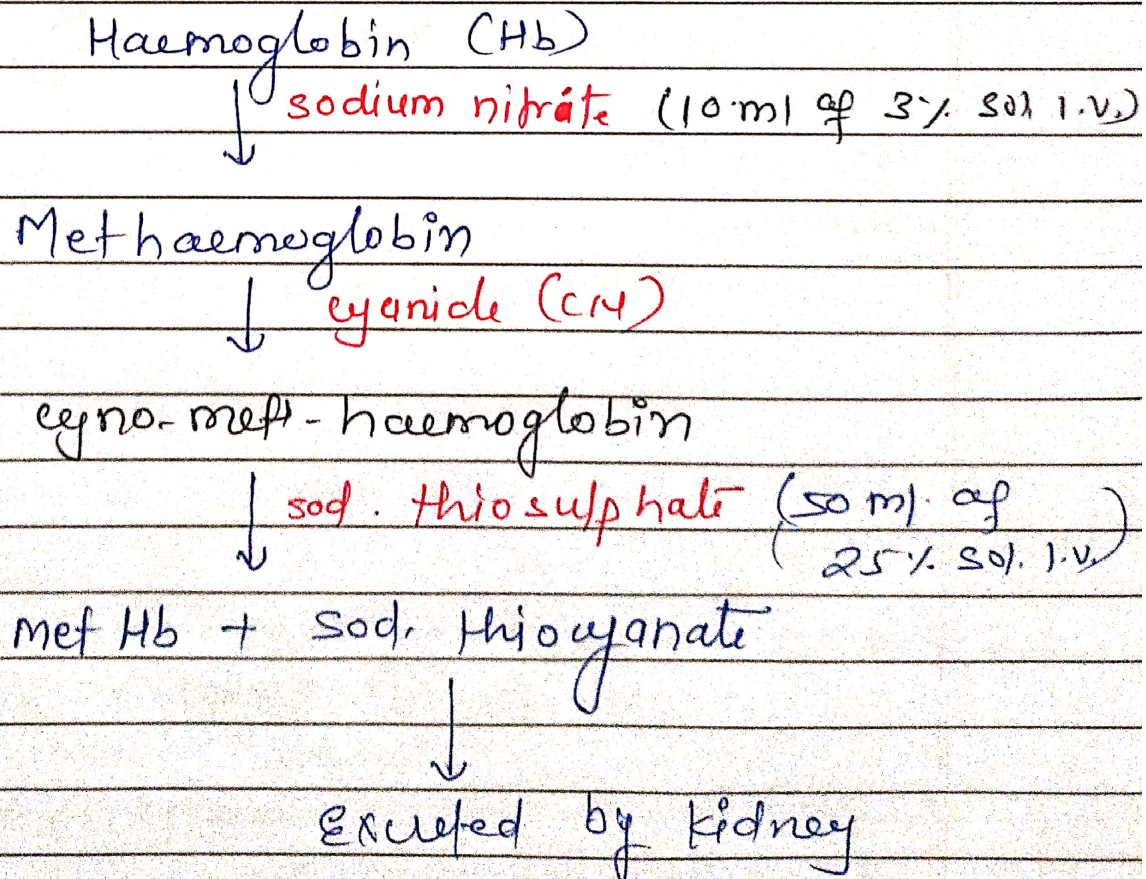 Haemoglobin (Hb)
sodium nitrate (10 ml of 3% sol I.V.)
Methaemoglobin
cyanide (CN)
cyno-met-haemoglobin
sod. thiosulphate (50 ml. of
25% sol. I.V.)
met Hb + Sod. thiocyanate
Excreted by kidney